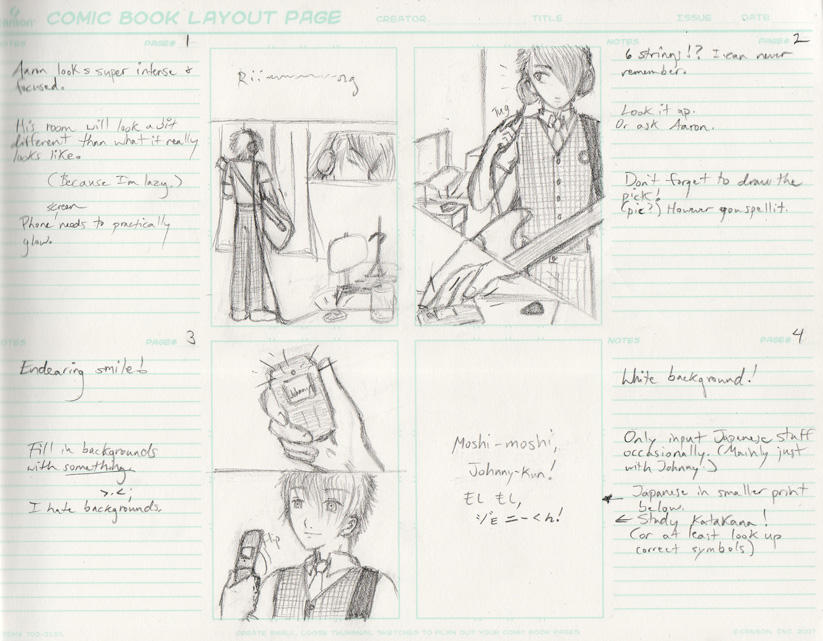 COMIC BOOK LAYOUT PAGE
CREATOR
TITLE
ISSUE
DATE
NOTES
PAGE# 1
Aaron looks super intense &
focused.
His room will look a bit
different than what it really
looks like.
(Because I'm lazy.)
screen
Phone needs to practically
glow.
NOTES
PAGE# 2
6 strings!? I can never
remember.
Look it up.
Or ask Aaron.
Don't forget to draw the
pick!
(pic?) However you spell it.
Tug
NOTES
PAGE# 3
Endearing smile!
Fill in backgrounds
with something
>.<;
I hate backgrounds.
Johnny
flip
Moshi-moshi,
Johnny-kun!
もし もし,
ジョニーくん!
NOTES
PAGE# 4
White background!
Only input Japanese stuff
occasionally. (Mainly just
with Johnny.)
← Japanese in smaller print
below.
← Study Katakana!
(or at least look up
correct symbols)
CREATE SMALL, LOOSE THUMBNAIL SKETCHES TO PLAN OUT YOUR COMIC BOOK PAGES